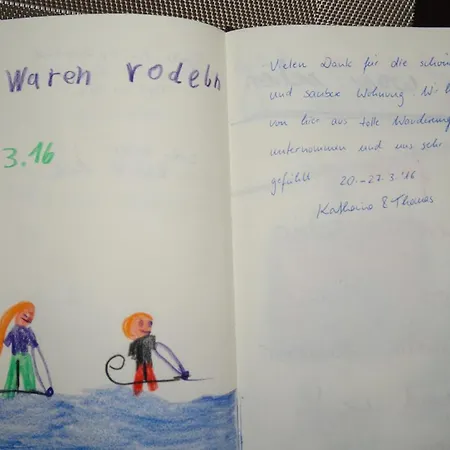 Waren rodeln
3.16
Vielen Dank für die schön
und sauber Wohnung. Wir
von hier aus tolle Wanderung
unternommen und uns sehr
gefühlt 20.-27.3.'16
Katharina & Thomas